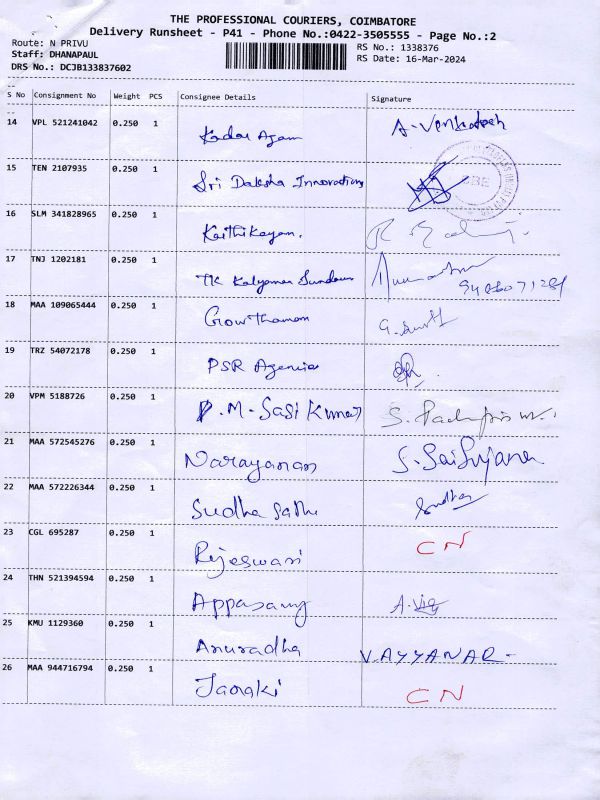 THE PROFESSIONAL COURIERS, COIMBATORE
Delivery Runsheet - P41 - Phone No.:0422-3505555 - Page No.:2
Route: N PRIVU
Staff: DHANAPAUL
DRS No.: DCJB133837602
RS No.: 1338376
RS Date: 16-Mar-2024
S No Consignment No Weight PCS Consignee Details Signature
14 VPL 521241042 0.250 1 Kadar Azam A. Venkatesh
15 TEN 2107935 0.250 1 Sri Daksha Innovations
16 SLM 341828965 0.250 1 Karthikeyan.
17 TNJ 1202181 0.250 1 TK Kalyana Sundaram
18 MAA 109065444 0.250 1 Gowthaman
19 TRZ 54072178 0.250 1 PSR Agencies
20 VPM 5188726 0.250 1 P.M-Sasi Kumar
21 MAA 572545276 0.250 1 Narayanan S. Sai Sujana
22 MAA 572226344 0.250 1 Sudha Sathi Sudha
23 CGL 695287 0.250 1 Rijeswari CN
24 THN 521394594 0.250 1 Appasamy
25 KMU 1129360 0.250 1 Anuradha V.AYYANAR-
26 MAA 944716794 0.250 1 Janaki CN